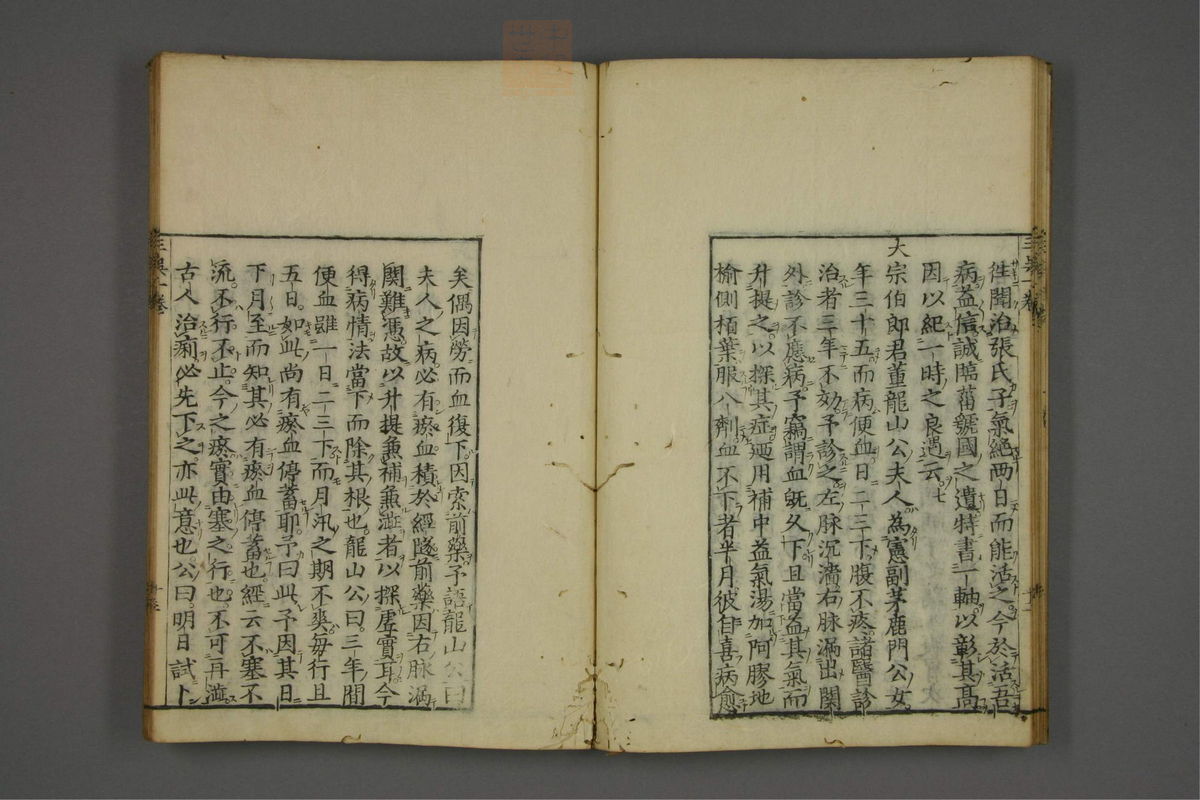 徃聞治張氏子氣絕两日而能活之今於活吾
病益信誠臨菑虢國之遺特書一軸以彰其髙
因以紀一時之良遇云七
大宗伯郎君董龍山公夫人為憲副茅鹿門公女
年三十五而病便血日二三下腹不疼諸醫診
治者三年不効予診之左脉沉濇右脉漏出関
外診不應病予竊謂血旣久下且當益其氣而
升提之以探其症廼用補中益氣湯加阿膠地
榆側栢葉服八劑血不下者半月彼自喜病愈
矣偶因勞而血復下因索前藥予語龍山公曰
夫人之病必有瘀血積於經隧前藥因右脉漏
関難憑故以升提兼補兼澁者以探虛實耳今
得病情法當下而除其根也龍山公曰三年間
便血雖一日二三下而月汛之期不爽每行且
五日如此尚有瘀血停蓄耶予曰此予因其日
下月至而知其必有瘀血停蓄也經云不塞不
流不行不止今之瘀實由塞之行也不可再澁
古人治痢必先下之亦此意也公曰明日試卜
三吳一卷